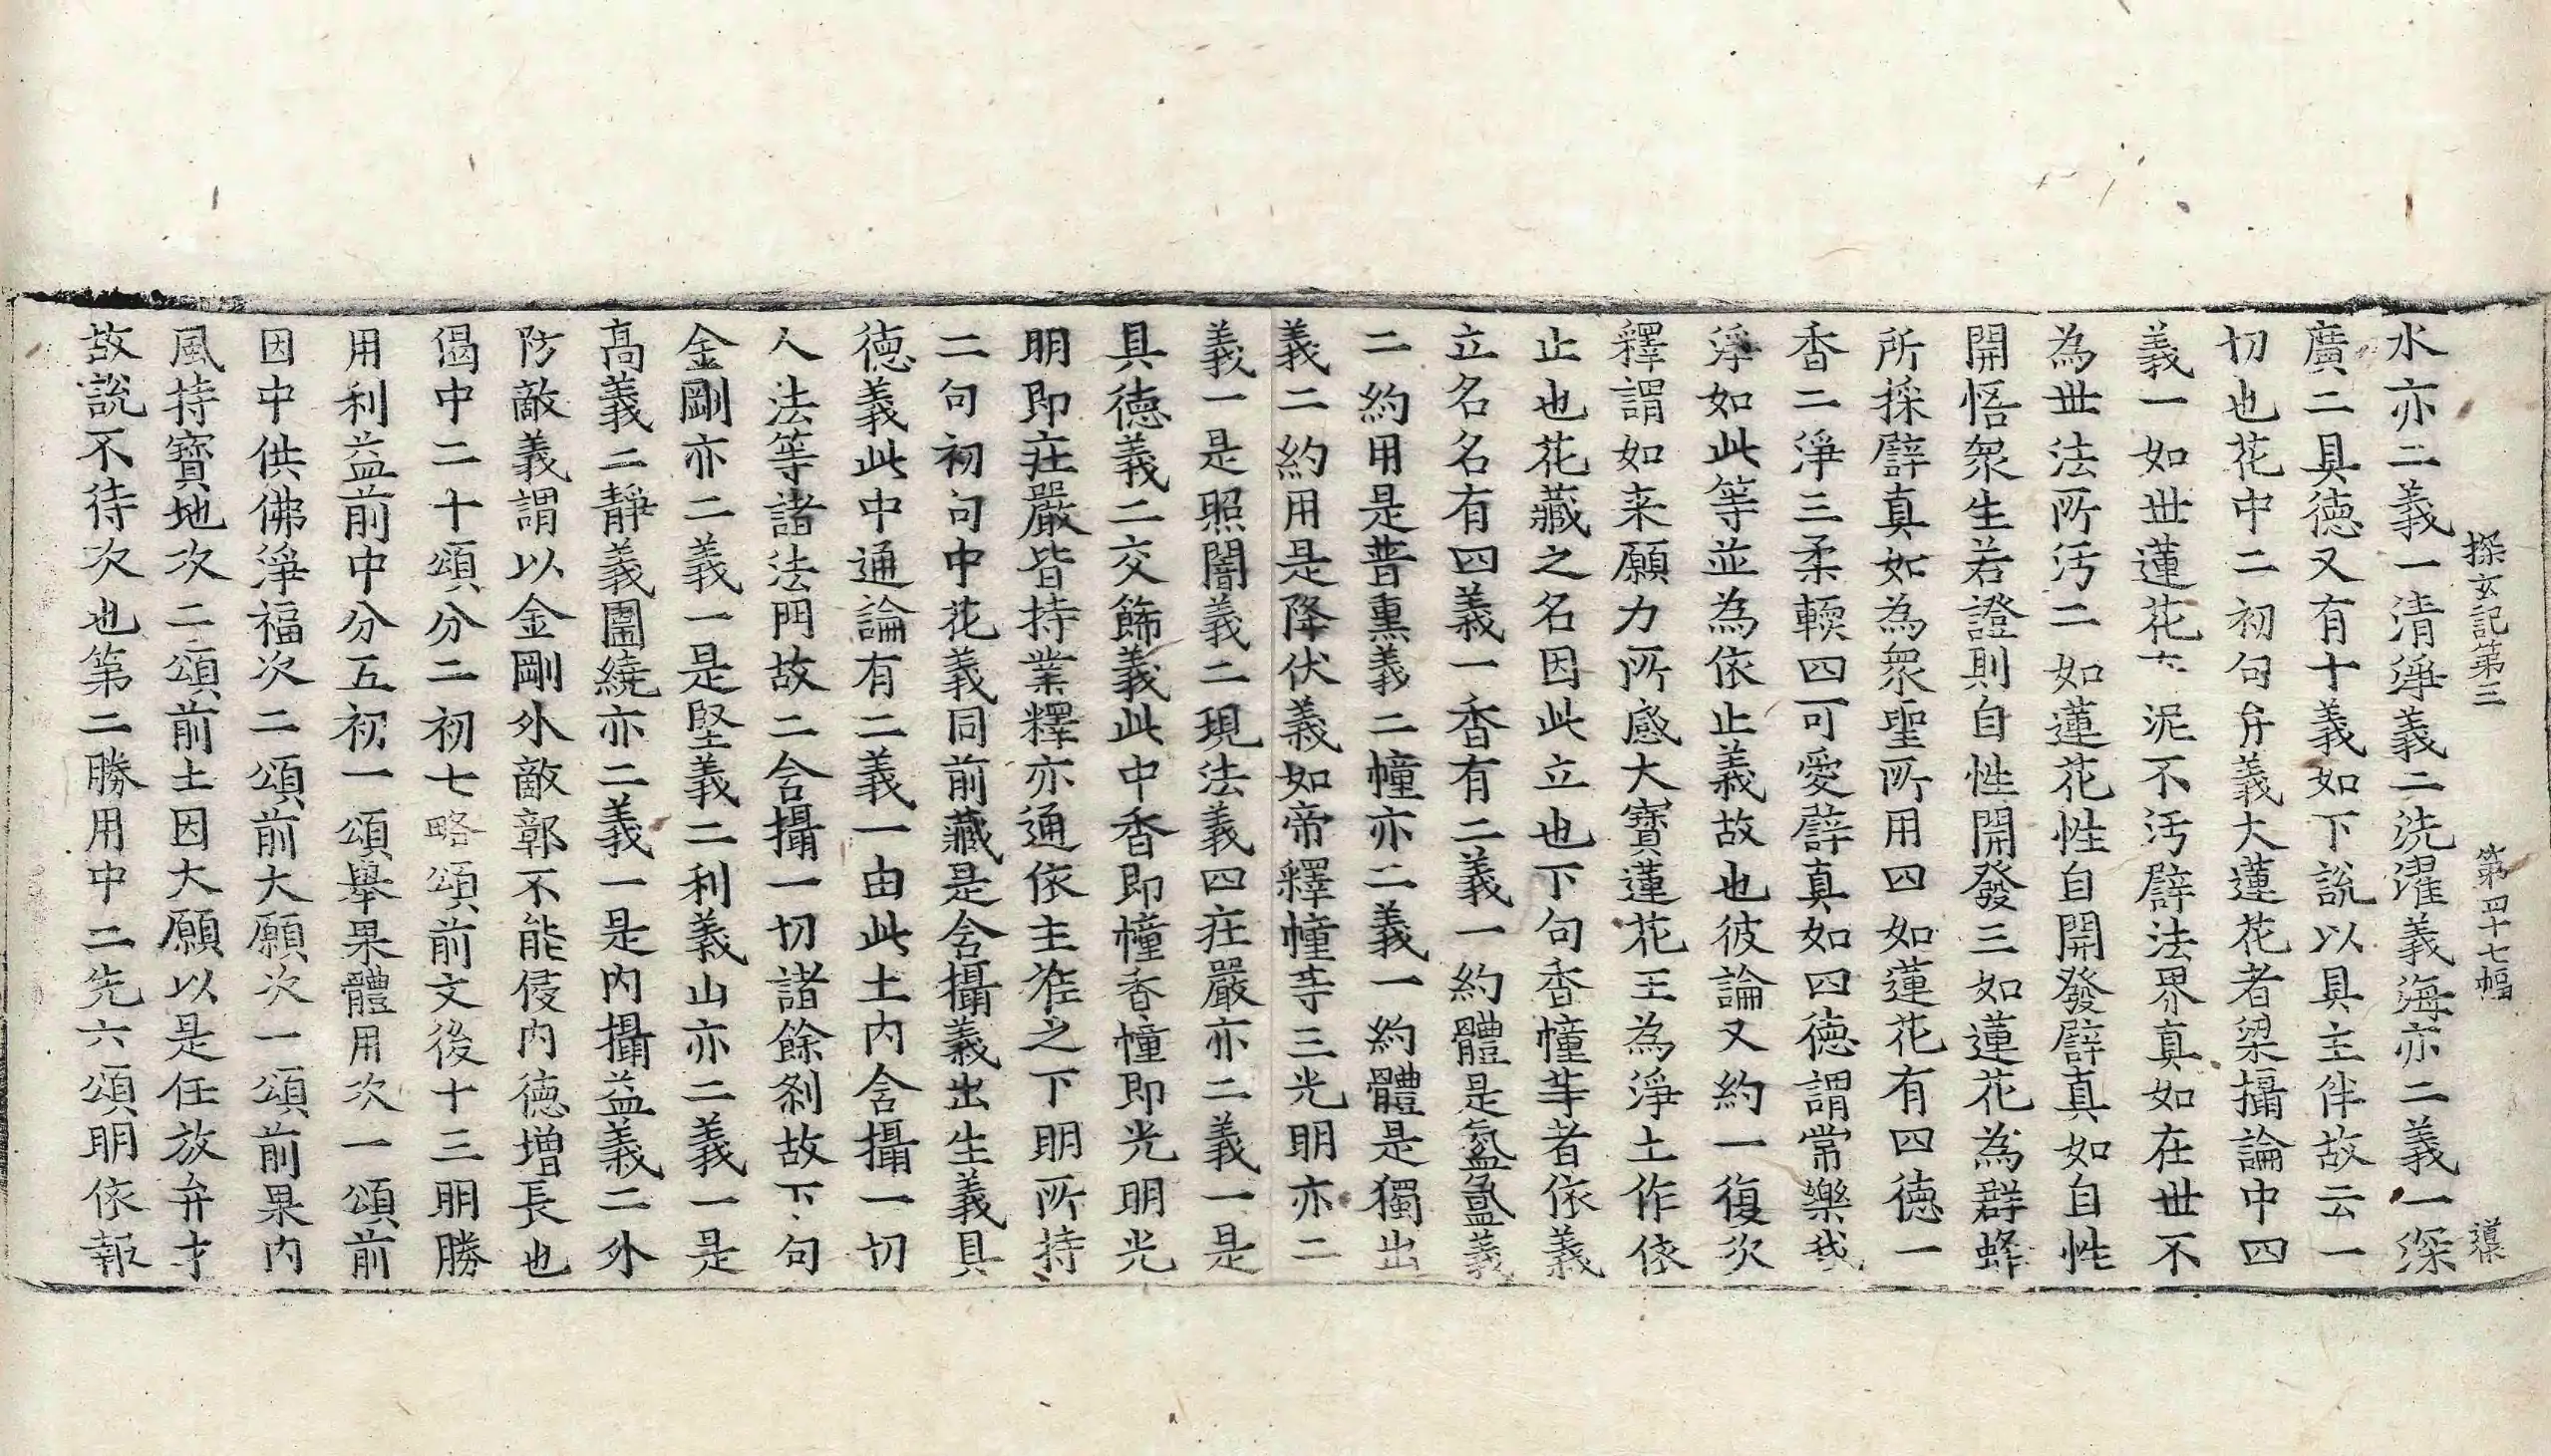 探玄記第三 第四十七幅 導
水亦二義一清淨義二洗濯義海亦二義一深
廣二具徳又有十義如下說以具主伴故云一
切也花中二初句弁義大蓮花者梁攝論中四
義一如世蓮花在泥不汚譬法界真如在世不
為世法所汚二如蓮花性自開發譬真如自性
開悟衆生若證則自性開發三如蓮花為群蜂
所採譬真如為衆聖所用四如蓮花有四徳一
香二淨三柔輭四可愛譬真如四徳謂常樂我
淨如此等並為依止義故也彼論又約一復次
釋謂如来願力所感大寶蓮花王為淨土作依
止也花藏之名因此立也下句香幢等者依義
立名名有四義一香有二義一約體是氛氳義
二約用是普熏義二幢亦二義一約體是獨出
義二約用是降伏義如帝釋幢等三光明亦二
義一是照闇義二現法義四莊嚴亦二義一是
具徳義二交飾義此中香即幢香幢即光明光
明即莊嚴皆持業釋亦通依主准之下明所持
二句初句中花義同前藏是含攝義出生義具
徳義此中通論有二義一由此土内含攝一切
人法等諸法門故二含攝一切諸餘剎故下句
金剛亦二義一是堅義二利義山亦二義一是
高義二靜義圍繞亦二義一是内攝益義二外
防敵義謂以金剛外敵鄣不能侵内徳增長也
偈中二十頌分二初七略頌前文後十三明勝
用利益前中分五初一頌舉果體用次一頌前
因中供佛淨福次二頌前大願次一頌前果内
風持寶地次二頌前土因大願以是任放弁才
故說不待次也第二勝用中二先六頌明依報